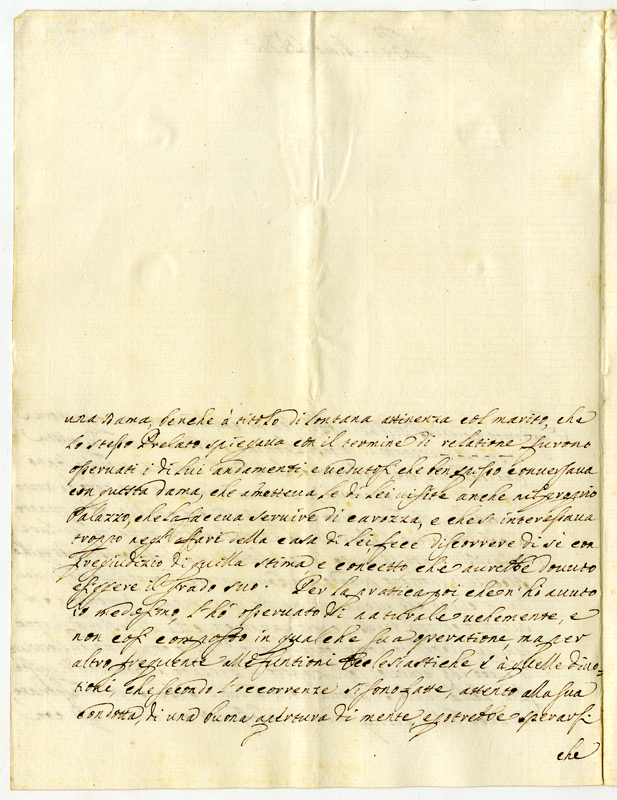 una Dama, benche à titolo di lontana attinenza col marito, che
lo stesso Prelato spiegava con il termine di relatione, furono
osservati i di lui andamenti, e vedutosi che ben spesso conversava
con questa dama, che ametteva le di lei visite anche nel proprio
Palazzo, che la faceva servire di carozza, e che s'interessava
troppo negl'affari della casa di lei fece discorrere di sè con
Pregiudizio di quella stima e concetto che avrebbe dovuto
esiggere il grado suo. Per la pratica poi che n'hò avuto
io medesimo, l'hò osservato di naturale vehemente, e
non così composto in qualche sua operatione, ma per
altro frequente alle funtioni Ecclesiastiche, e à quelle divo=
tioni, che secondo l'occorrenze si sono fatte, attento alla sua
condotta, di una buona apertura di mente, e potrebbe sperarsi
che